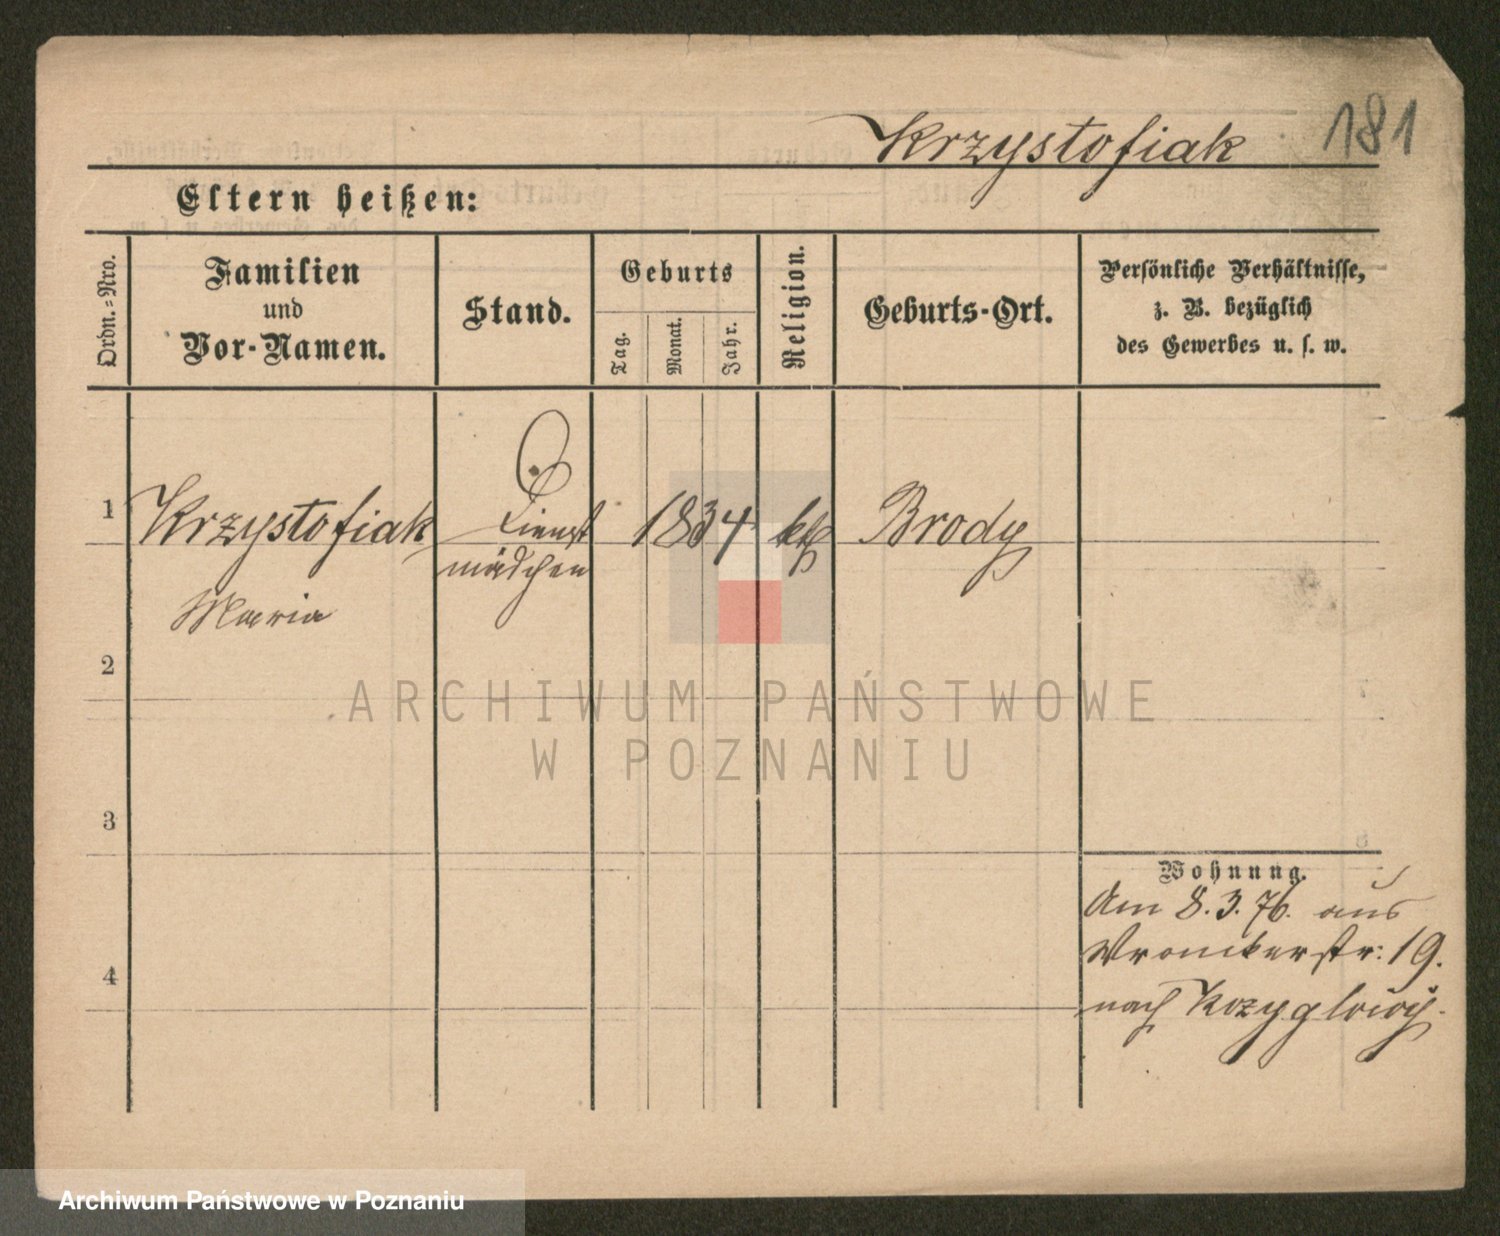 Krzystofiak 181
Eltern heißen:
Ordn.-Nro.
Familien
und
Vor-Namen.
Stand.
Geburts
Tag.
Monat.
Jahr.
Religion.
Geburts-Ort.
Persönliche Verhältnisse,
z. B. bezüglich
des Gewerbes u. s. w.
1 Krzystofiak Dienst 1834 kth Brody
mädchen
Maria
2
ARCHIWUM PAŃSTWOWE
W POZNANIU
3
Wohnung.
Am 8.3.76. aus
Wronkerstr: 19.
4
nach
Archiwum Państwowe w Poznaniu